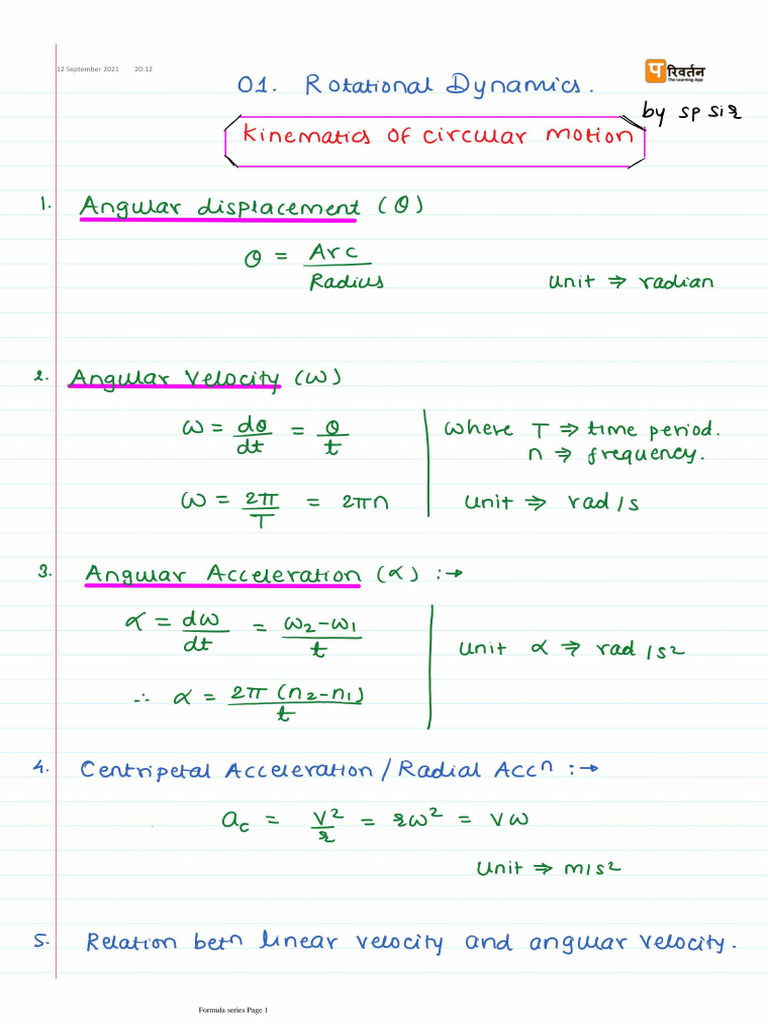 12 September 2021 20:12
परिवर्तन
The Learning App
01. Rotational Dynamics.
by SP Sir
Kinematics of circular motion
1. Angular displacement (θ)
θ = Arc / Radius
Unit ⇒ radian
2. Angular Velocity (ω)
ω = dθ/dt = θ/t
where T ⇒ time period.
n ⇒ frequency.
ω = 2π/T = 2πn
Unit ⇒ rad/s
3. Angular Acceleration (α) :→
α = dω/dt = ω₂-ω₁/t
Unit α ⇒ rad/s²
∴ α = 2π(n₂-n₁)/t
4. Centripetal Acceleration / Radial Accⁿ :→
a_c = v²/r = rω² = vω
Unit ⇒ m/s²
5. Relation betⁿ linear velocity and angular velocity.
Formula series Page 1